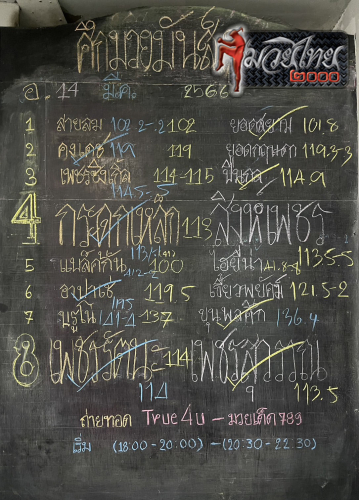 ศึกมวยมันส์
มวยไทย
๒๐๐๐
อ. 14 มี.ค. 2566
1 สายลม 102.2-2 102 ยอดสยาม 101.8
2 คงเดช 119 119 ยอดกฤษดา 119.3-3
3 เพชรซิ่งเกิล 114-115 ปืนกล 114.9
114.5-5
4 กระดูกเหล็ก 118 สิงห์เพชร
113.5-5
5 แบล็คกั้น 100
6 อาปาเช่ 119.5 เขี้ยวพยัคฆ์ 121.5-2
7 บรูโน่ 137 ขุนพลศึก 136.4
8 เพชรรัตนะ 114
114 113.5
ถ่ายทอด True4U - มวยเด็ด789
เริ่ม (18:00-20:00) - (20:30-22:30)